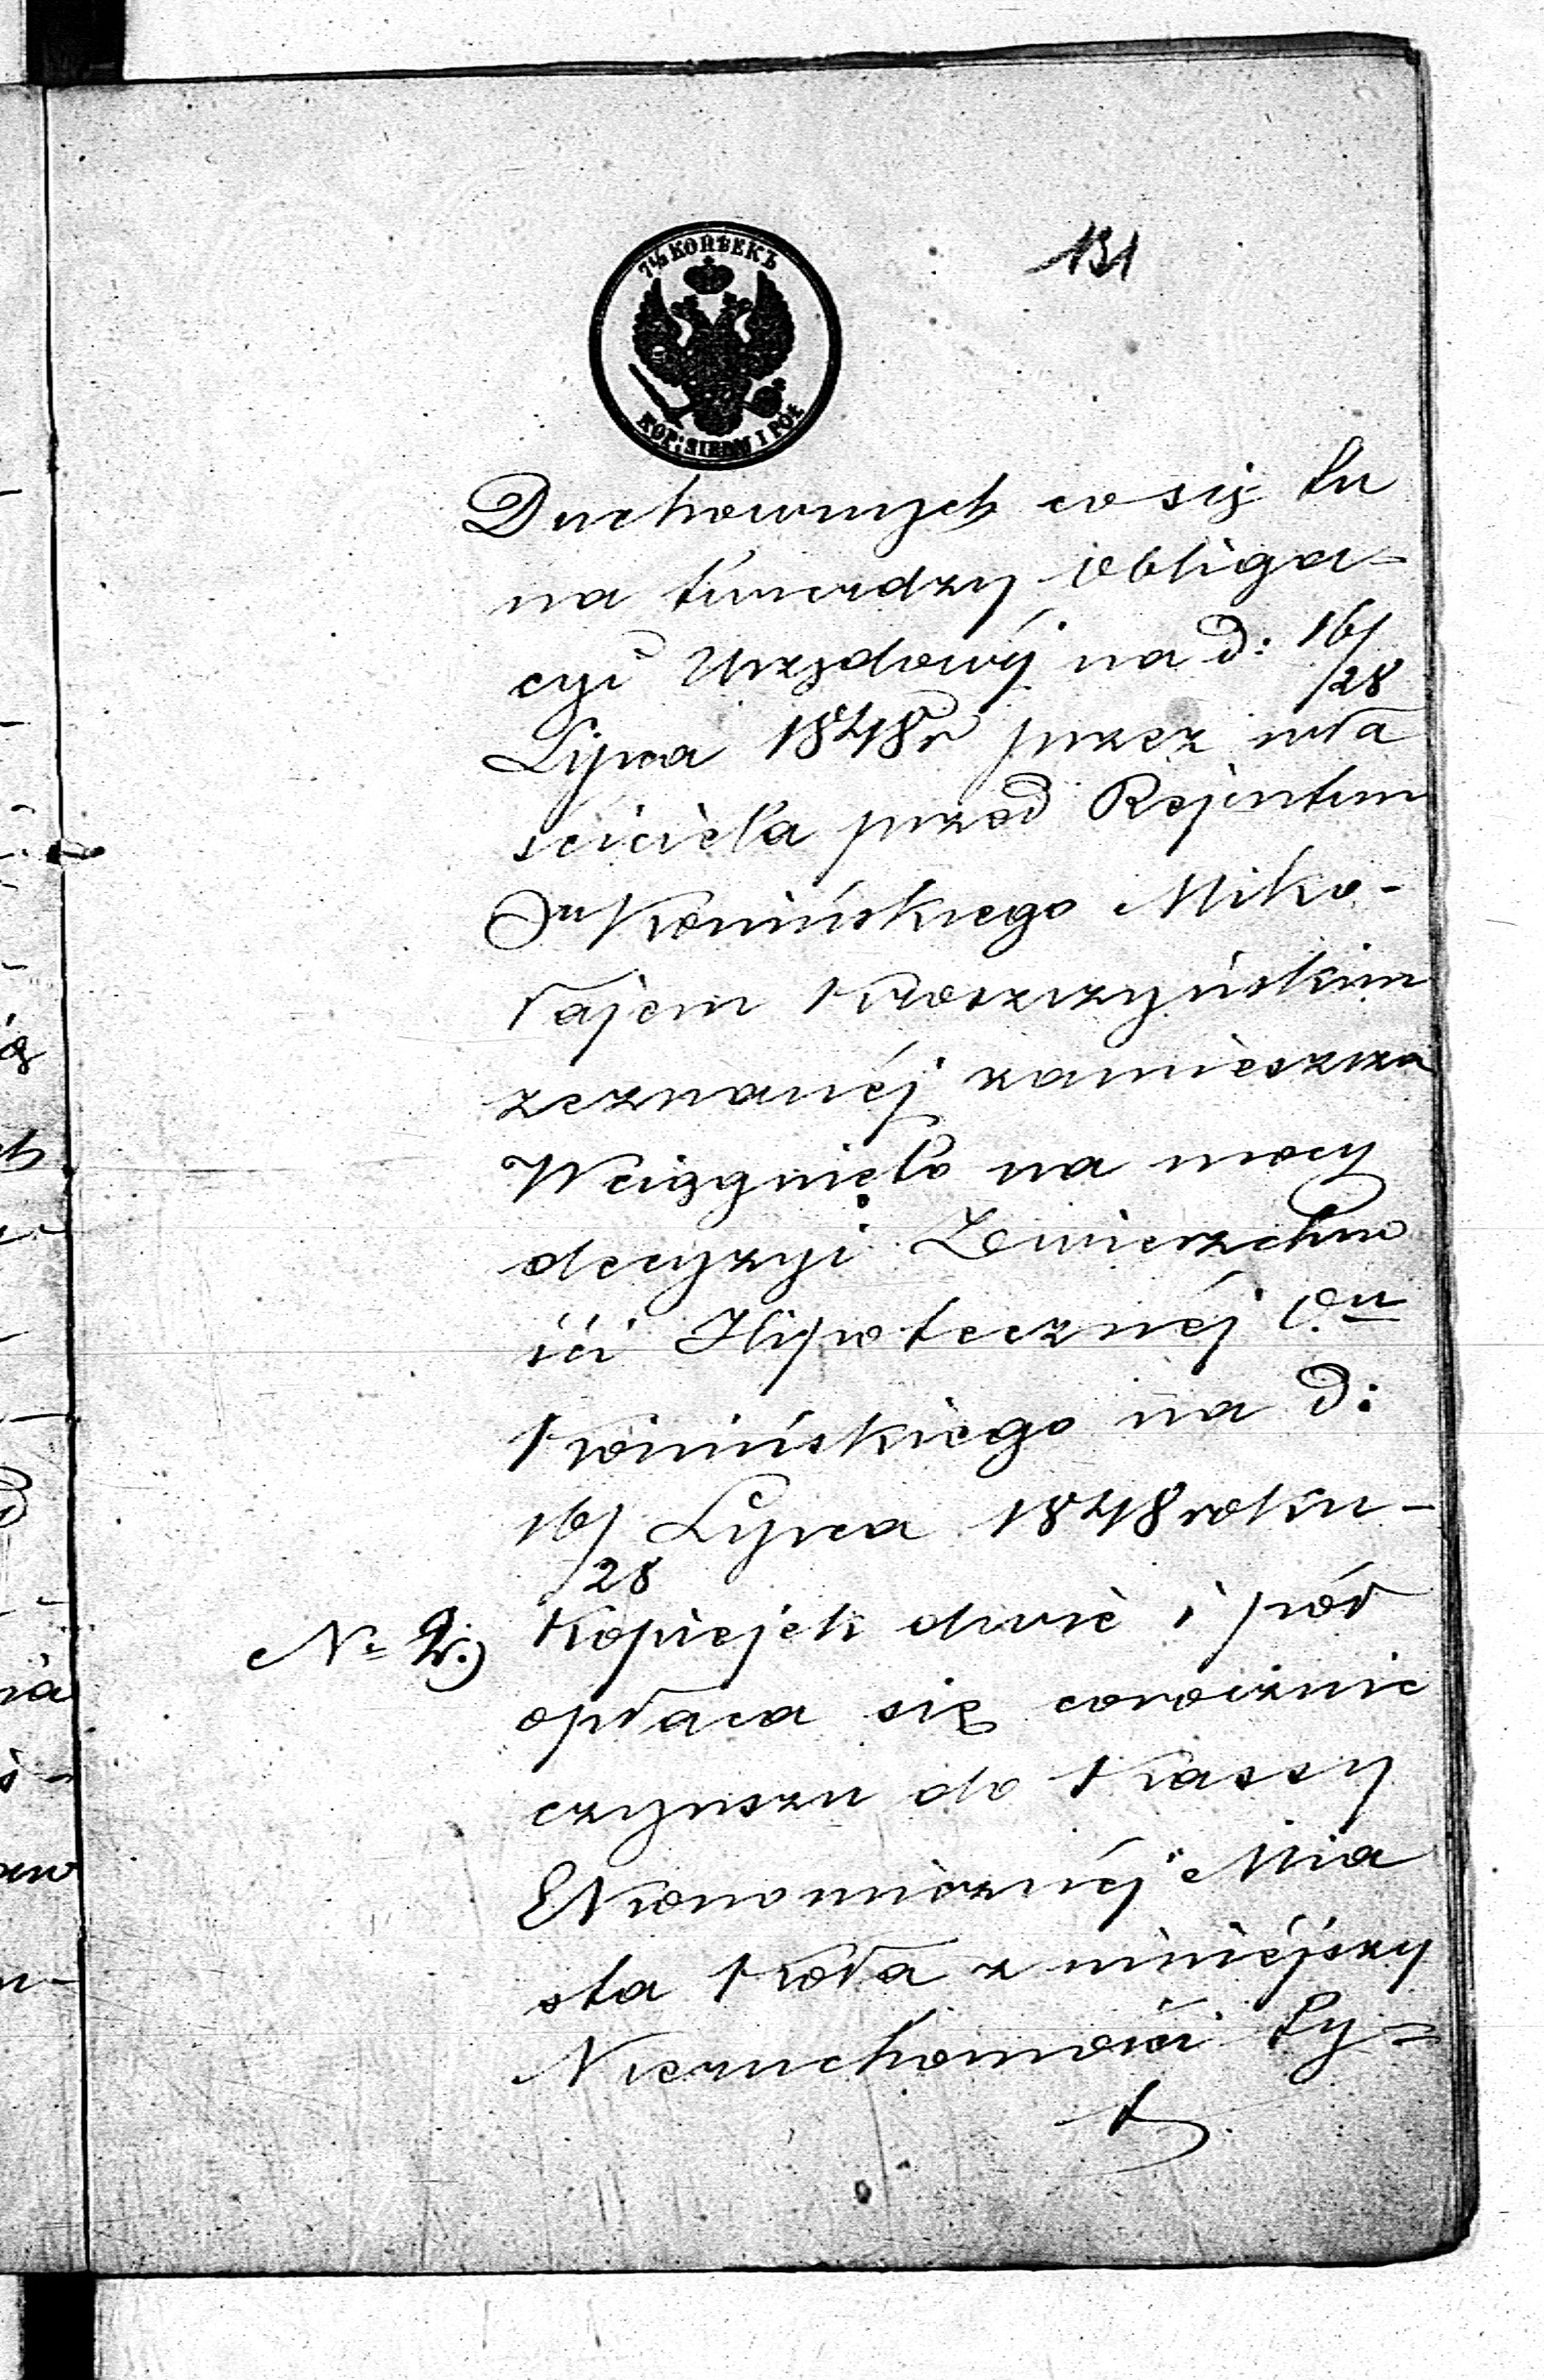 131
7½ КОПѢЕКЪ
KOP: SIEDM I PÓŁ
Duchownych co się tu
na twierdzy obliga=
cyi Urzędowéj na d: 16/28
Lipca 1848 r przez wła
ściciela przed Rejentem
Okonińskiego Miko-
łajem Kroszczyńskim
zeznanéj zamieszcza
Wciągnięto na mocy
decyzyi Zwierzchno
ści Hipotecznéj Ou
Konińskiego na d:
16/28 Lipca 1848 roku -
No 2.) Kopiejek dwie i pół
opłaca się corocznie
czynszu do Kassy
Ekonomicznéj Mia
sta Koła z niniejszy
Nieruchomości Ty=